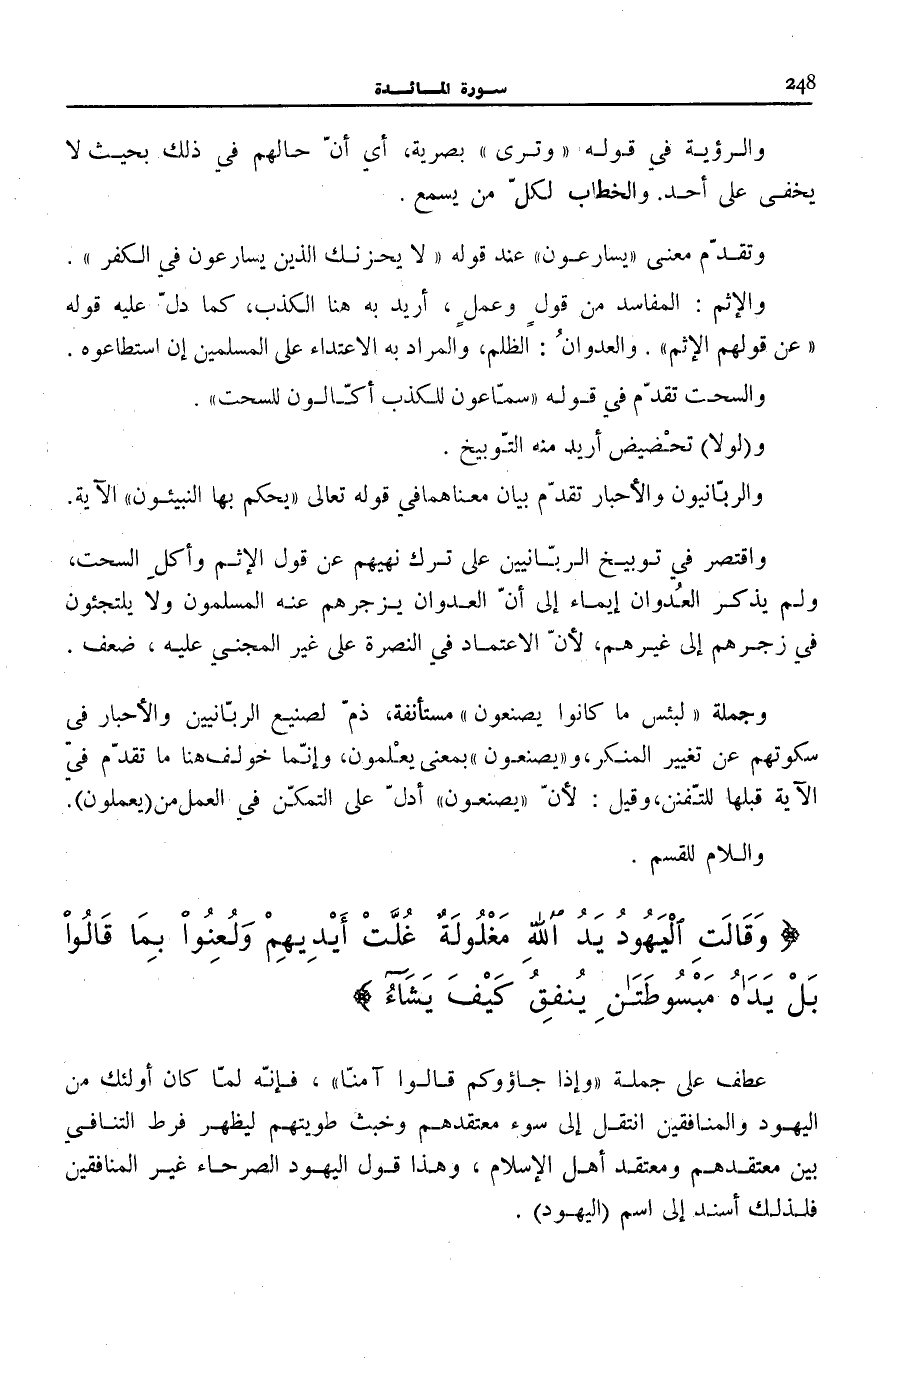 248
سورة المائدة
والرؤية في قوله « وترى » بصرية، أي أنّ حالهم في ذلك بحيث لا
يخفى على أحد. والخطاب لكلّ من يسمع .
وتقدّم معنى «يسارعون» عند قوله « لا يحزنك الذين يسارعون في الكفر » .
والإثم : المفاسد من قولٍ وعملٍ ، أريد به هنا الكذب، كما دلّ عليه قوله
« عن قولهم الإثم» . والعدوانُ : الظلم، والمراد به الاعتداء على المسلمين إن استطاعوه .
والسحت تقدّم في قوله «سمّاعون للكذب أكّالون للسحت» .
و(لولا) تحْضيض أريد منه التّوبيخ .
والربّانيون والأحبار تقدّم بيان معناهما في قوله تعالى «يحكم بها النبيئون» الآية.
واقتصر في توبيخ الربّانيين على ترك نهيهم عن قول الإثم وأكلِ السحت،
ولم يذكر العُدوان إيماء إلى أنّ العدوان يزجرهم عنه المسلمون ولا يلتجئون
في زجرهم إلى غيرهم، لأنّ الاعتماد في النصرة على غير المجني عليه ، ضعف .
وجملة « لبئس ما كانوا يصنعون » مستأنفة، ذمّ لصنيع الربّانيين والأحبار في
سكوتهم عن تغيير المنكر، و«يصنعون » بمعنى يعْلمون، وإنّما خولف هنا ما تقدّم في
الآية قبلها للتّفنن، وقيل : لأنّ «يصنعون» أدلّ على التمكّن في العمل من (يعملون).
واللام للقسم .
﴿ وَقَالَتِ ٱلْيَهُودُ يَدُ ٱللَّهِ مَغْلُولَةٌ غُلَّتْ أَيْدِيهِمْ وَلُعِنُواْ بِمَا قَالُواْ
بَلْ يَدَاهُ مَبْسُوطَتَـٰنِ يُنفِقُ كَيْفَ يَشَآءُ ﴾
عطف على جملة «وإذا جاؤوكم قالوا آمنّا» ، فإنّه لمّا كان أولئك من
اليهود والمنافقين انتقل إلى سوء معتقدهم وخبث طويتهم ليظهر فرط التنافي
بين معتقدهم ومعتقد أهل الإسلام ، وهذا قول اليهود الصرحاء غير المنافقين
فلذلك أسند إلى اسم (اليهود) .